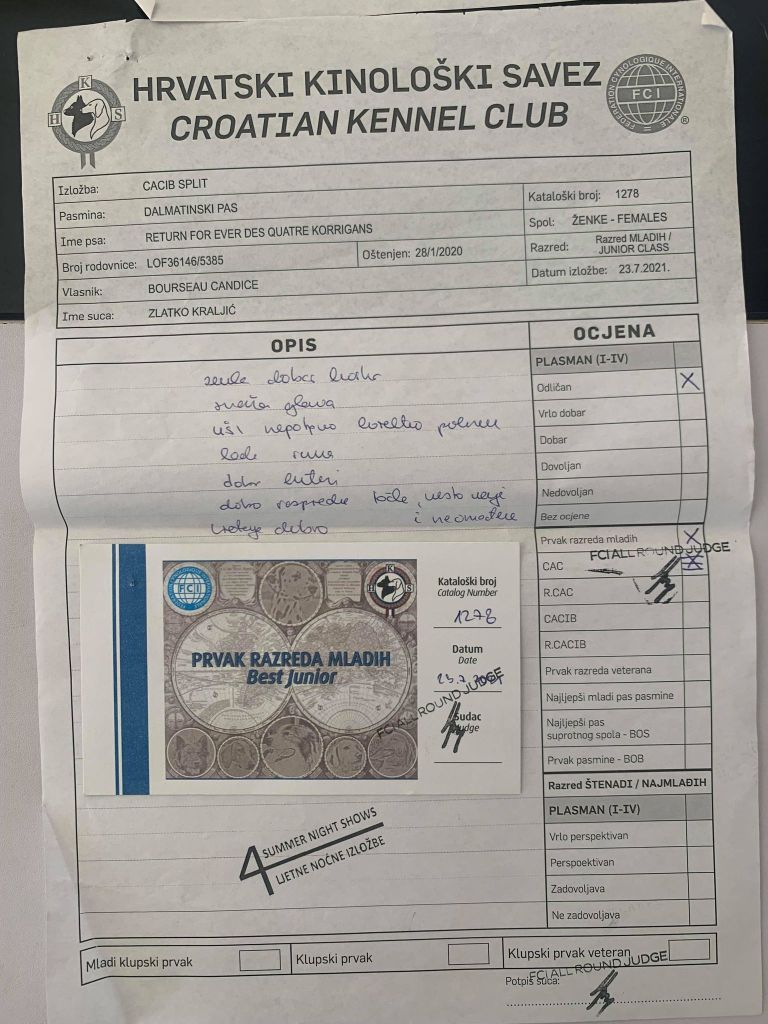 HRVATSKI KINOLOŠKI SAVEZ
CROATIAN KENNEL CLUB
K
H S
FEDERATION CYNOLOGIQUE INTERNATIONALE
FCI
®
Izložba: CACIB SPLIT
Pasmina: DALMATINSKI PAS
Ime psa: RETURN FOR EVER DES QUATRE KORRIGANS
Broj rodovnice: LOF36146/5385
Oštenjen: 28/1/2020
Vlasnik: BOURSEAU CANDICE
Ime suca: ZLATKO KRALJIĆ
Kataloški broj: 1278
Spol: ŽENKE - FEMALES
Razred: Razred MLADIH /
JUNIOR CLASS
Datum izložbe: 23.7.2021.
OPIS
dobar
glava
uši
dobro
dobro
i
OCJENA
PLASMAN (I-IV)
Odličan X
Vrlo dobar
Dobar
Dovoljan
Nedovoljan
Bez ocjene
Prvak razreda mladih X
FCI ALL ROUND JUDGE
CAC X
R.CAC
CACIB
R.CACIB
Prvak razreda veterana
Najljepši mladi pas pasmine
Najljepši pas
suprotnog spola - BOS
Prvak pasmine - BOB
Razred ŠTENADI / NAJMLAĐIH
PLASMAN (I-IV)
Vrlo perspektivan
Perspoektivan
Zadovoljava
Ne zadovoljava
FCI
K
H S
PRVAK RAZREDA MLADIH
Best Junior
Kataloški broj
Catalog Number
1278
Datum
Date
Sudac
Judge
FCI ALL ROUND JUDGE
4 SUMMER NIGHT SHOWS
LJETNE NOĆNE IZLOŽBE
Mladi klupski prvak
Klupski prvak
Klupski prvak veteran
FCI ALL ROUND JUDGE
Potpis suca: